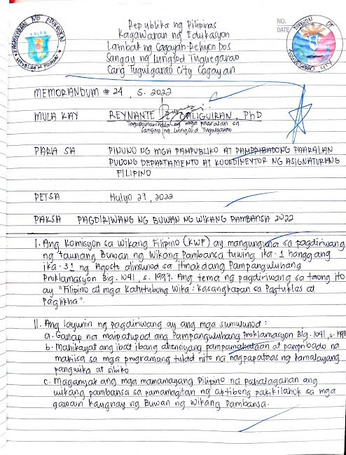 NO.
DATE
Republika ng Pilipinas
Kagawaran ng Edukasyon
Lambak ng Cagayan-Rehiyon Dos
Sangay ng Lungsod Tuguegarao
Carig Tuguegarao City Cagayan
MEMORANDUM # 24, S. 2022
MULA KAY REYNANTE Z. CALIGUIRAN, PhD
Sangay ng Lungsod Tuguegarao
PARA SA PINUNO NG MGA PAMPUBLIKO AT PAMPRIBADONG PAARALAN
PUNONG DEPARTAMENTO AT KOORDINEYTOR NG ASIGNATURANG
FILIPINO
PETSA Hulyo 27, 2022
PAKSA PAGDIRIWANG NG BUWAN NG WIKANG PAMBANSA 2022
I. Ang Komisyon sa Wikang Filipino (KWF) ay mangunguna sa pagdiriwang
ng taunang Buwan ng Wikang Pambansa tuwing ika-1 hanggang
ika-31 ng Agosto alinsunod sa itinakdang Pampanguluhang
Proklamasyon Blg. 1041, s. 1997. Ang tema ng pagdiriwang sa taong ito
ay "Filipino at mga Katutubong Wika: Kasangkapan sa Pagtuklas at
Paglikha".
II. Ang layunin ng pagdiriwang ay ang mga sumusunod:
a. Ganap na maipatupad ang Pampanguluhang Proklamasyon Blg. 1041, s. 1997
b. Mahikayat ang iba't ibang ahensiyang pampamahalaan at pampribado na
makiisa sa mga programang tulad nito ng pagpapataas ng kamalayang
pangwika at sibiko
c. Maganyak ang mga mamamayang Pilipino na pahalagahan ang
wikang pambansa sa pamamagitan ng aktibong pakikilahok sa mga
gawain kaugnay ng Buwan ng Wikang Pambansa.